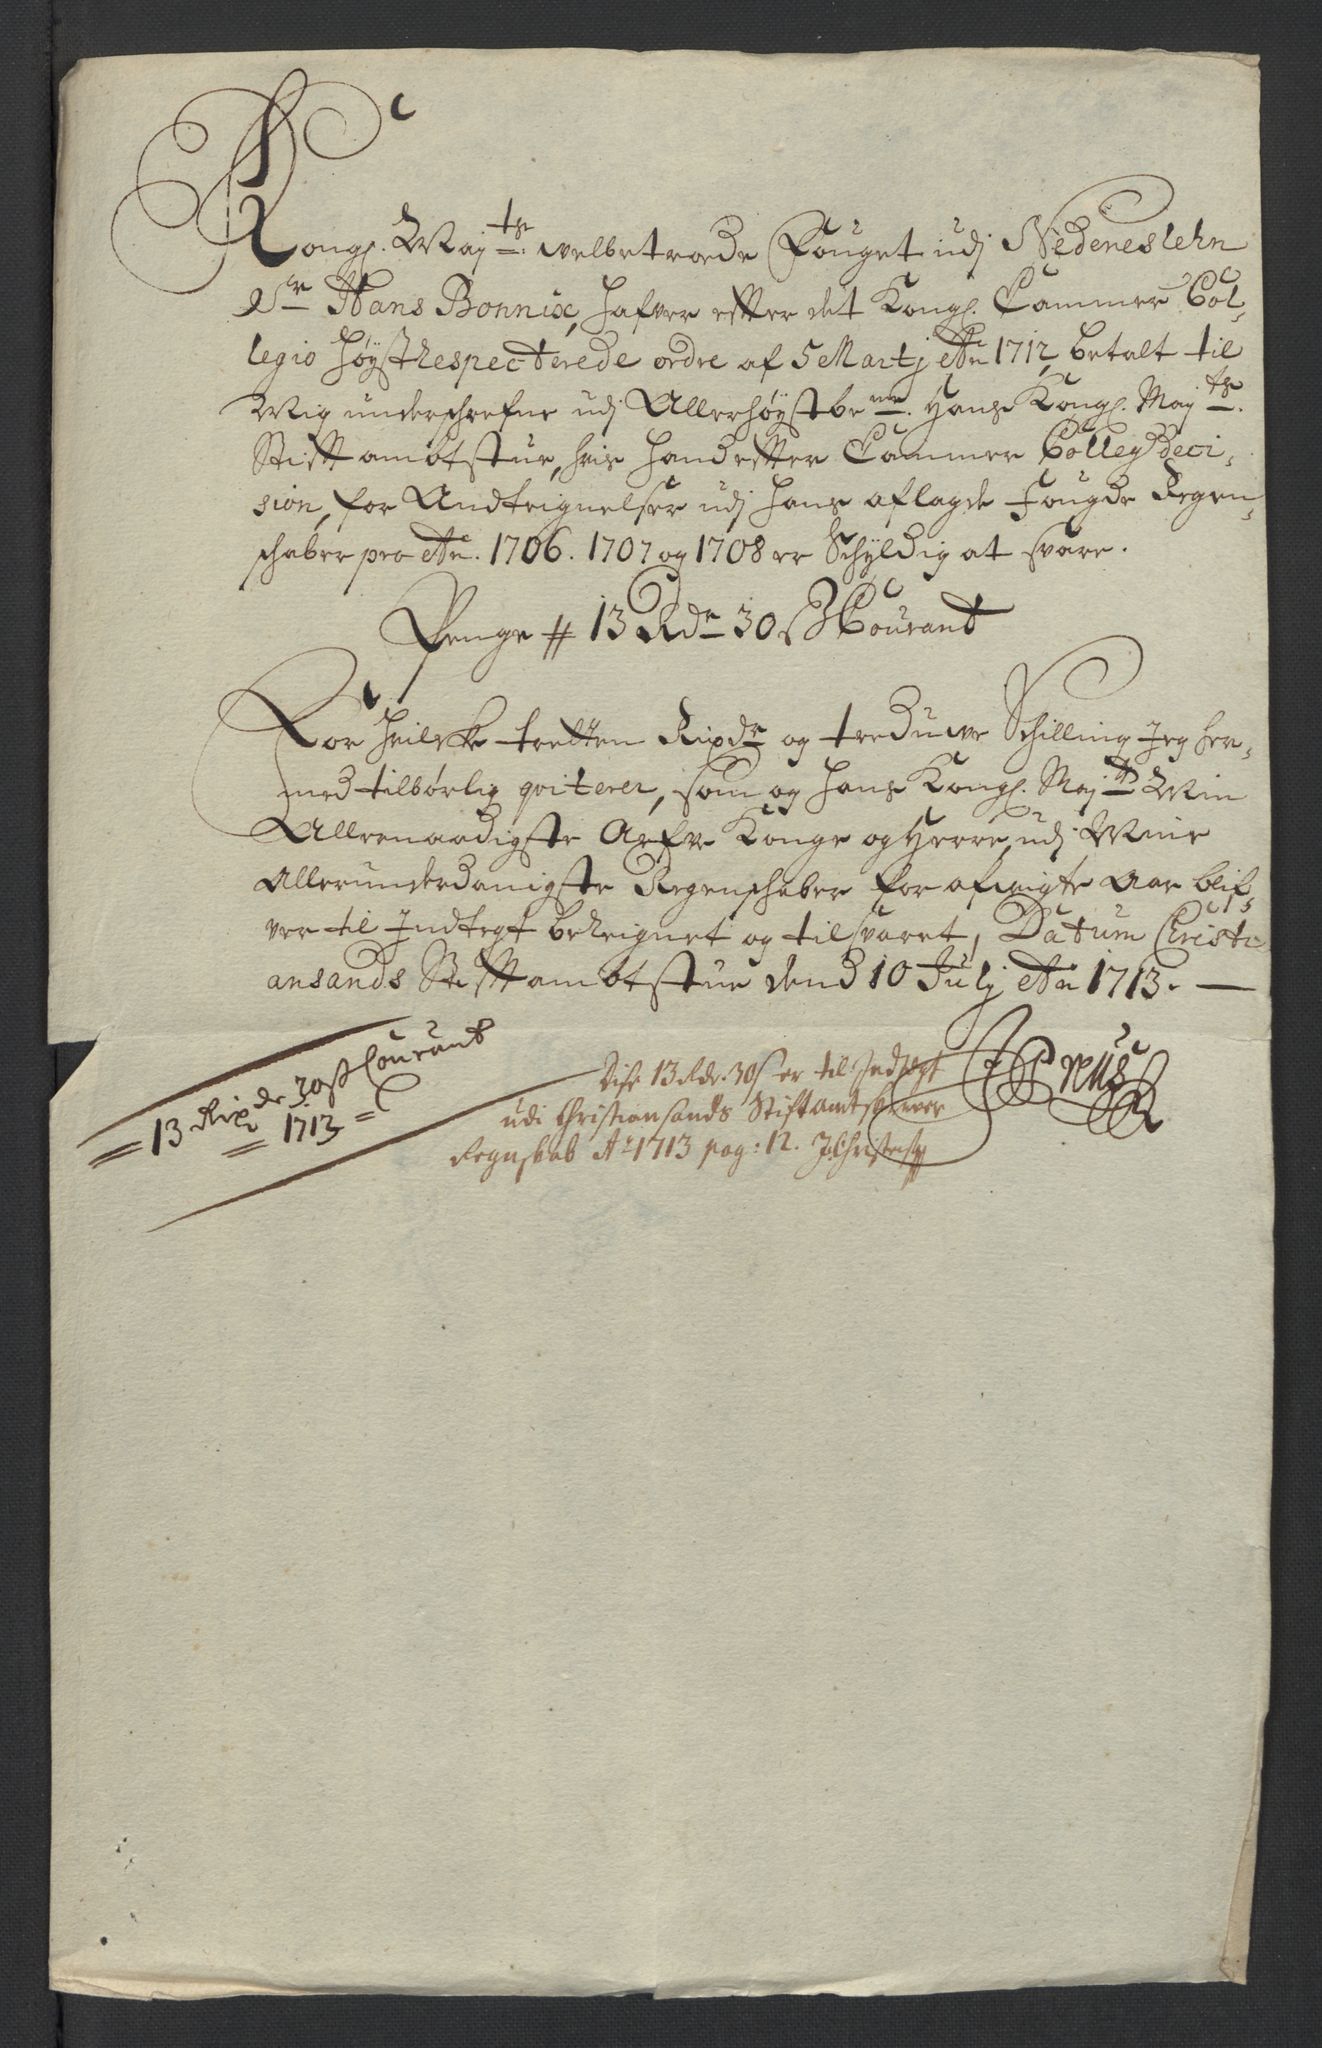 Kongl. Maj:ts velbetroede Fouget udj Nedeneslehn
Sr Hans Bonnix, hafver effter det Kongl. Cammer Col-
legio Høyst Respecterede ordre af 5 Martj Ao 1712, betalt til
Mig underschrefne udj Allerhøystbemte Hans Kongl. Maj:ts
Stiftambtstue, hvis hand effter Cammer Collegj Deci-
sion, for Andtegnelser udj hans aflagde Fougde Regen-
schaber pro Ao. 1706. 1707 og 1708 er Schyldig at svare.
Penge # 13 Rdr 30 s Courant
For hvilcke tretten Rixdr og treduve Schilling Jeg her-
med tilbørlig qviterer, som og hans Kongl. Maj:ts Min
Allernaadigste Arfve Konge og Herre, udj Mine
Allerunderdanigste Regenschaber for afvigte Aar blif-
ver til Indtegt bereignet og tilsvaret, Datum Christi-
ansands Stiftambtstue dend 10 Julj Ao 1713. —
13 Rixdr 30 ß Courant
1713
Disse 13 Rdr. 30 s er til Indtægt
udi Christiansands Stiftamtskrever
Regnskab Ao 1713 pag: 12. J. Christens